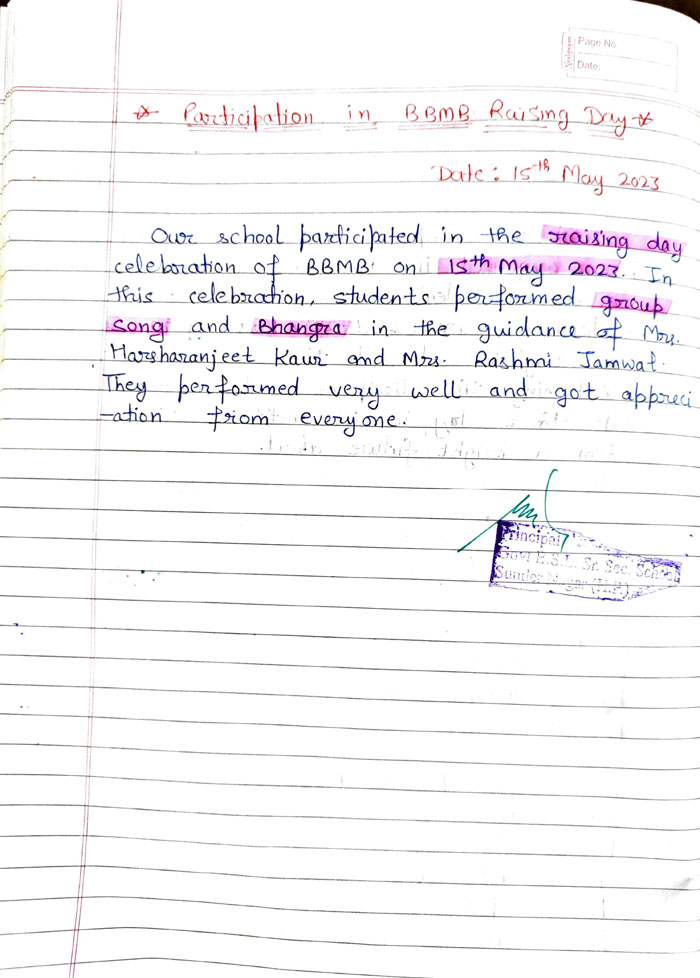 Page No.
Date:
☆ Participation in BBMB Raising Day ☆
Date: 15th May 2023
Our school participated in the raising day
celebration of BBMB on 15th May 2023. In
this celebration, students performed group
song and Bhangra in the guidance of Mrs.
Harsharanjeet Kaur and Mrs. Rashmi Jamwal.
They performed very well and got appreci
-ation from everyone.
Principal
Govt B.S.L. Sr. Sec. School
Sunder Nagar (H.P.)